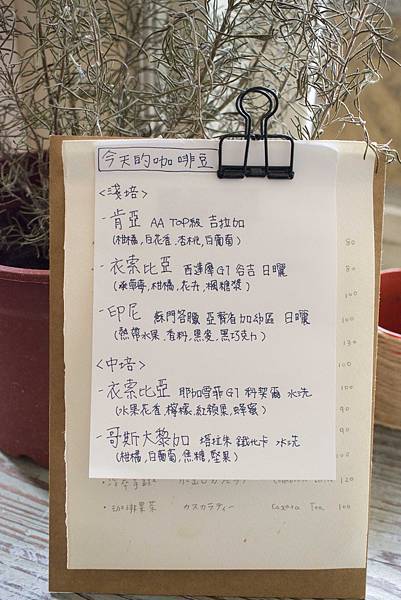 今天的咖啡豆
<淺焙>
-肯亞 AA TOP級 吉拉加
(柑橘,白花香,杏桃,白葡萄)
-衣索比亞 西達摩 G1 谷吉 日曬
(柑橘,花卉,楓糖漿)
-印尼 蘇門答臘 亞齊省 加幼區 日曬
(熱帶水果,香料,黑麥,黑巧克力)
<中焙>
-衣索比亞 耶加雪菲 G1 科契爾 水洗
(水果花香,檸檬,紅蘋果,蜂蜜)
-哥斯大黎加 塔拉珠 鐵比卡 水洗
(柑橘,白葡萄,焦糖,堅果)
80
80
100
100
130
100
100
90
90
100
120
·咖啡果茶 カスカラティー Cascara Tea 100